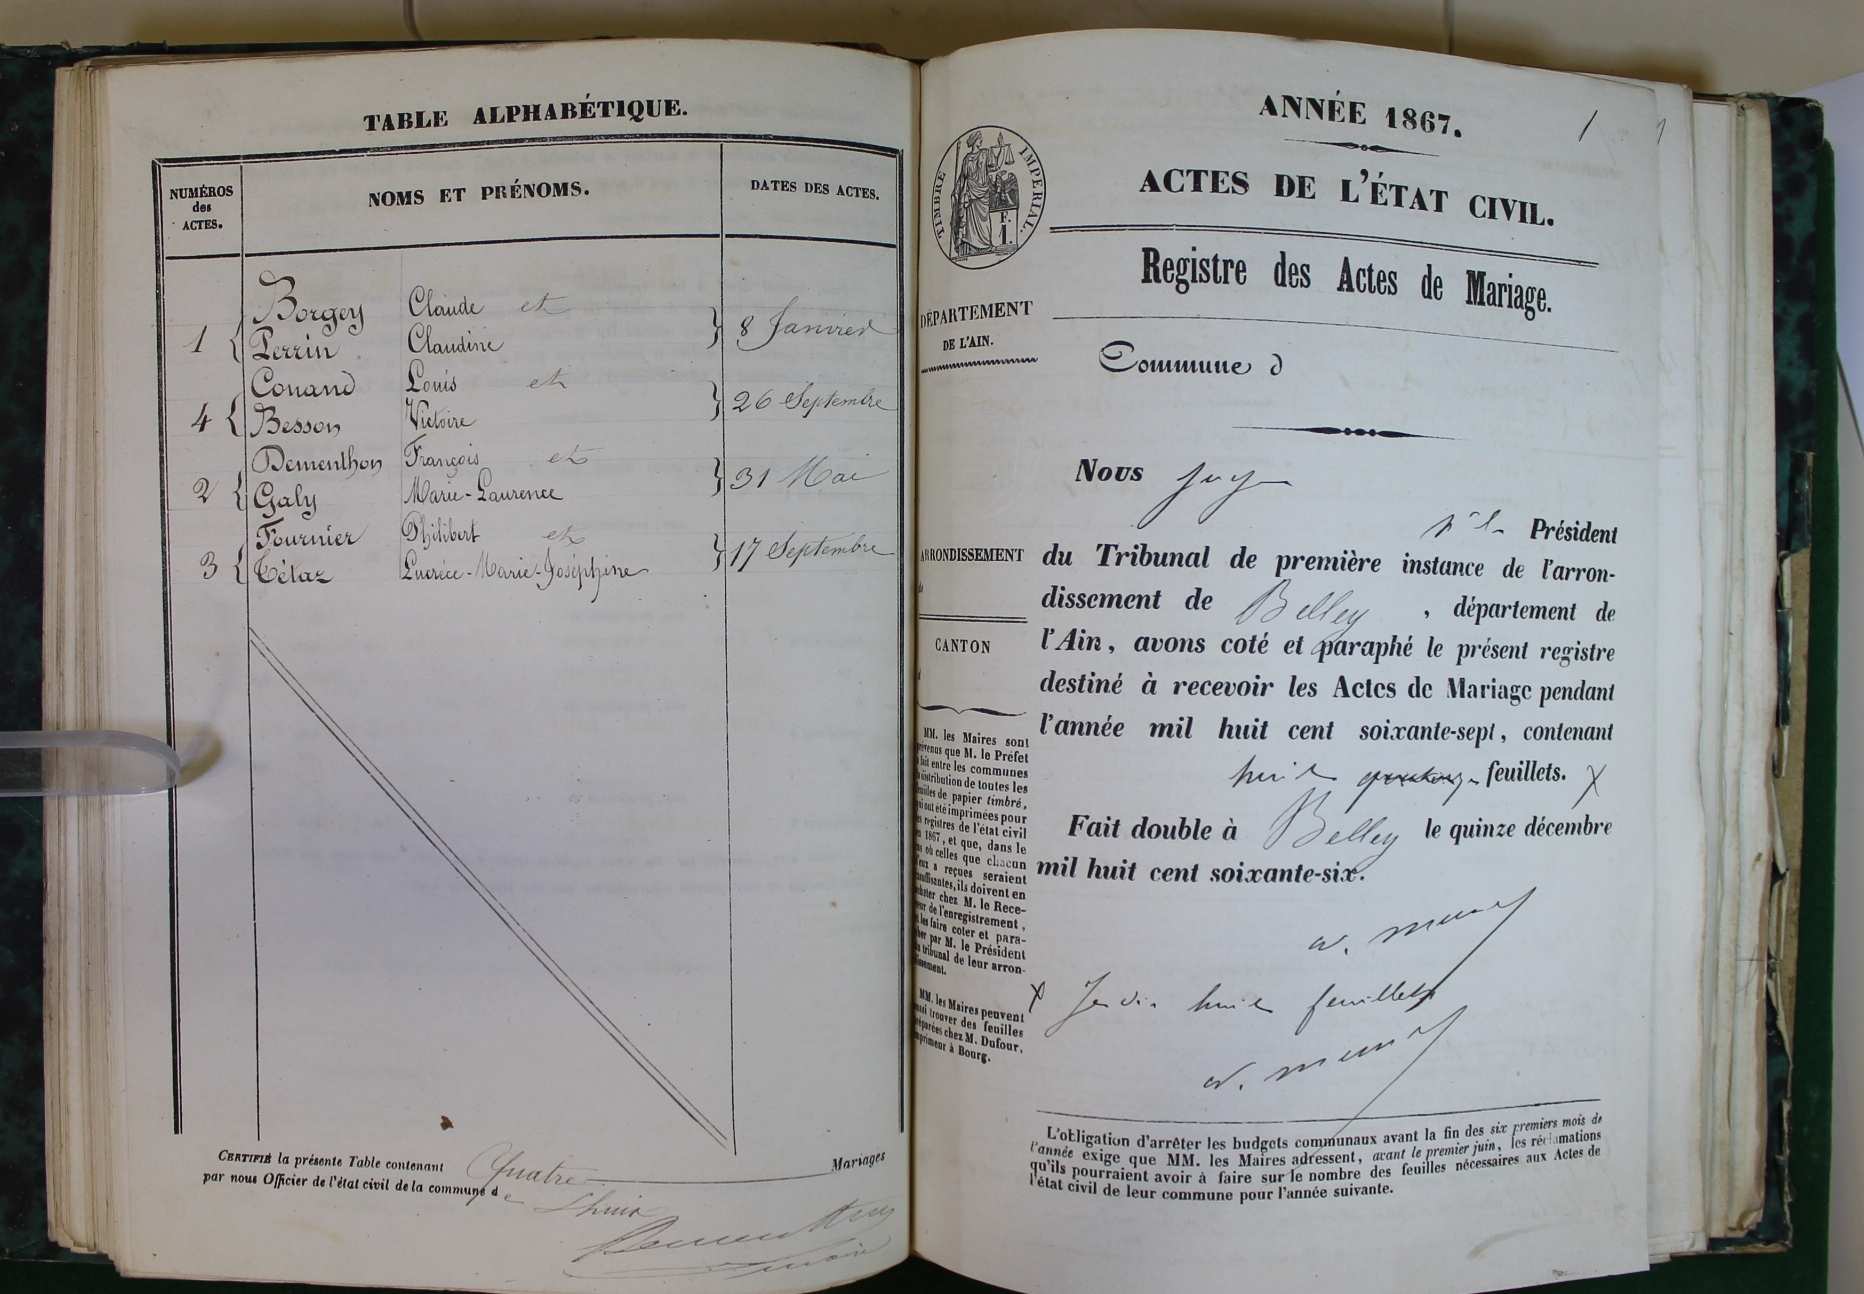 TABLE ALPHABÉTIQUE.
NUMÉROS des ACTES.
NOMS ET PRÉNOMS.
DATES DES ACTES.
Borgey Claude et
1 { Perrin Claudine } 8 Janvier
Conand Louis et
4 { Besson Victoire } 26 Septembre
Dementhon François et
2 { Galy Marie-Laurence } 31 Mai
Fournier Philibert et
3 { Tétaz Lucréce-Marie-Joséphine } 17 Septembre
CERTIFIÉ la présente Table contenant Quatre Mariages
par nous Officier de l'état civil de la commune de Lhuis
Dementhon
maire
1
ANNÉE 1867.
TIMBRE IMPÉRIAL.
F.
1.
ACTES DE L'ÉTAT CIVIL.
Registre des Actes de Mariage.
DÉPARTEMENT
DE L'AIN.
Commune d
Nous Juge
Président
ARRONDISSEMENT
du Tribunal de première instance de l'arron-
dissement de Belley, département de
CANTON
l'Ain, avons coté et paraphé le présent registre
destiné à recevoir les Actes de Mariage pendant
l'année mil huit cent soixante-sept, contenant
huit feuillets. X
Fait double à Belley le quinze décembre
mil huit cent soixante-six.
MM. les Maires sont
prévenus que M. le Préfet
a fait entre les communes
la distribution de toutes les
feuilles de papier timbré,
qui ont été imprimées pour
les registres de l'état civil
en 1867, et que, dans le
cas où celles que chacun
d'eux a reçues seraient
insuffisantes, ils doivent en
acheter chez M. le Rece-
veur de l'enregistrement,
et les faire coter et para-
pher par M. le Président
du tribunal de leur arron-
dissement.
MM. les Maires peuvent
aussi trouver des feuilles
préparées chez M. Dufour,
imprimeur à Bourg.
X Je dis huit feuillets
L'obligation d'arrêter les budgets communaux avant la fin des six premiers mois de
l'année exige que MM. les Maires adressent, avant le premier juin, les réclamations
qu'ils pourraient avoir à faire sur le nombre des feuilles nécessaires aux Actes de
l'état civil de leur commune pour l'année suivante.